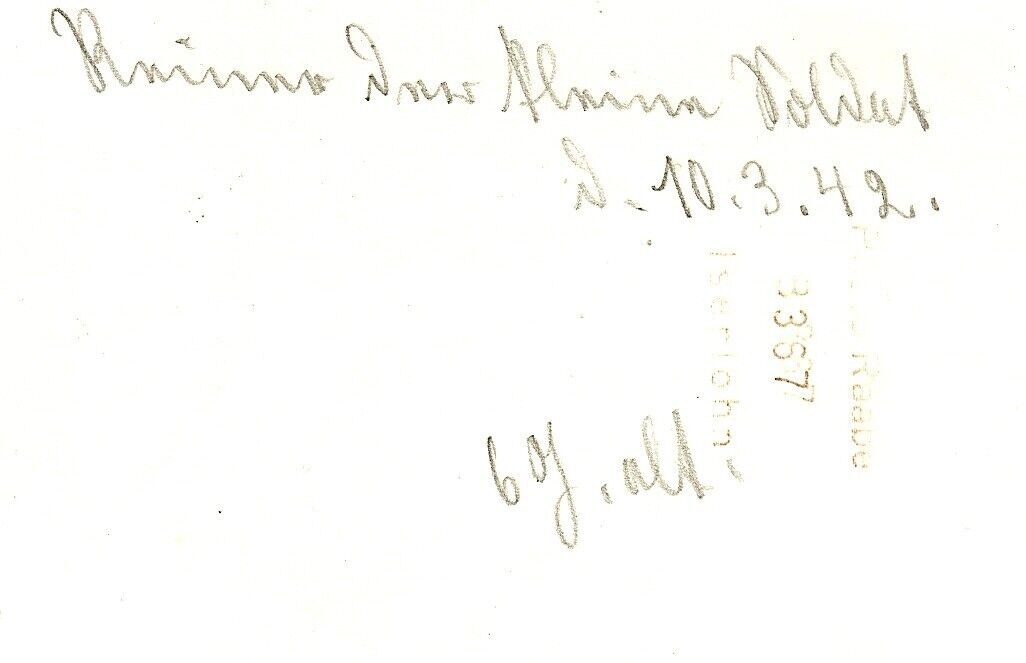 Reiner der kleine Soldat
d. 10.3.42.
6 J. alt.
Raabe
3367
Iserlohn